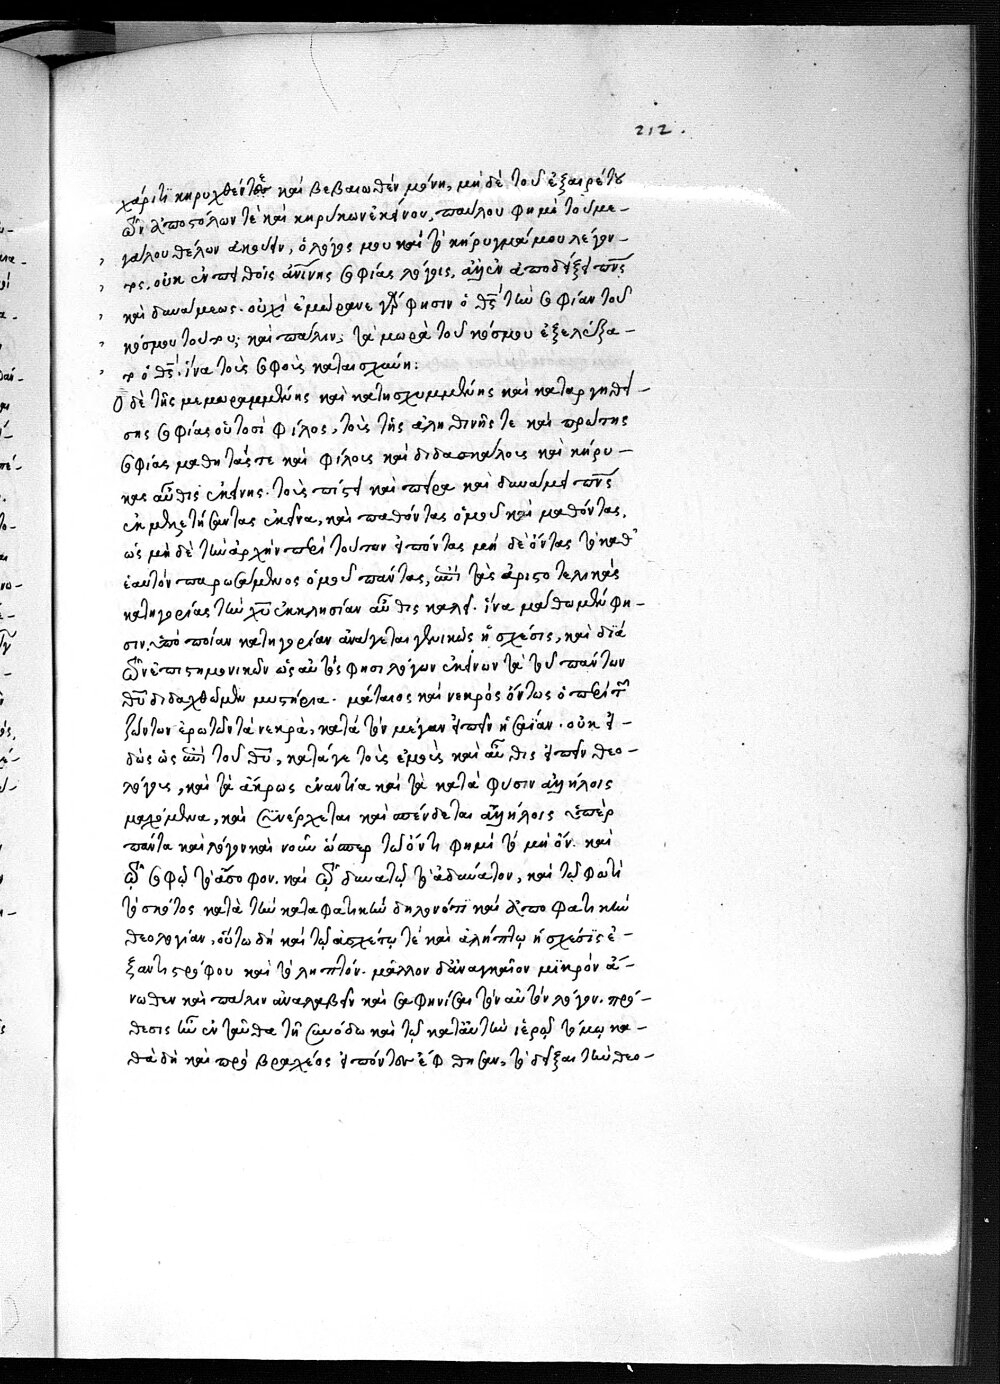 212.
χάριτι κηρυχθέντος καὶ βεβαιωθὲν μόνῃ, μὴ δὲ τοῦ ἐξαιρέτου
τῶν ἀποστόλων τὲ καὶ κηρύκων ἐκείνου, παύλου φημὶ τοῦ με-
γάλου θέλων ἀκούειν, ὁ λόγος μου καὶ τὸ κήρυγμά μου λέγον-
τος, οὐκ ἐν πειθοῖς ἀνίνης σοφίας λόγοις, ἀλλ' ἐν ἀποδείξει πνς
καὶ δυνάμεως. οὐχὶ ἐμώρανε γάρ φησιν ὁ θς τὴν σοφίαν τοῦ
κόσμου τούτου; καὶ πάλιν; τὰ μωρὰ τοῦ κόσμου ἐξελέξα-
το ὁ θς, ἵνα τοὺς σοφοὺς καταισχύνῃ:
Ὁ δὲ τῆς μεμωραμμένης καὶ κατῃσχυμμένης καὶ καταργηθεί-
σης σοφίας οὑτοσὶ φίλος, τοὺς τῆς ἀληθινῆς τε καὶ πρώτης
σοφίας μαθητάς τε καὶ φίλους καὶ διδασκάλους καὶ κήρυ-
κας αὖθις ἐκείνης. τοὺς πίστει καὶ πείρᾳ καὶ δυνάμει πνς
ἐκμυηστήσαντας ἐκεῖνα, καὶ παθόντας ὁμοῦ καὶ μαθόντας,
ὡς μὴ δὲ τὴν ἀρχὴν περὶ τούτων εἰπόντας μὴ δὲ ὄντας τὸ καθ'
ἑαυτὸν παρωσάμενος ὁμοῦ πάντας, ἐπὶ τὰς ἀριστοτελικὰς
κατηγορίας τὴν χυ ἐκκλησίαν αὖθις καλεῖ. ἵνα μάθωμεν φη-
σιν ὑπὸ ποίαν κατηγορίαν ἀνάγεται γενικῶς ἡ σχέσις, καὶ διὰ
τῶν ἐπιστημονικῶν ὡς αὐτός φησι λόγων ἐκείνων τὰ τοῦ πάντων
θυ διδαχθῶμεν μυστήρια. μάταιος καὶ νεκρὸς ὄντως ὁ περὶ τῶν
ζώντων ἐρωτῶν τὰ νεκρὰ, κατὰ τὸν μέγαν εἰπεῖν ἡσαΐαν. οὐκ εἰ-
δὼς ὡς ἐπὶ τοῦ θυ, κατά γε τοὺς ἐμοὺς καὶ αὖθις εἰπεῖν θεο-
λόγους, καὶ τὰ ἄκρως ἐναντία καὶ τὰ κατὰ φύσιν ἀλλήλοις
μαχόμενα, καὶ συνέρχεται καὶ σπένδεται ἀλλήλοις ὑπὲρ
πάντα καὶ λόγον καὶ νοῦν ὥσπερ τῷ ὄντι φημὶ τὸ μὴ ὄν. καὶ
τῷ σοφῷ τὸ ἄσοφον. καὶ τῷ δυνατῷ τὸ ἀδύνατον, καὶ τῷ φωτὶ
τὸ σκότος κατὰ τὴν καταφατικὴν δηλονότι καὶ ἀποφατικὴν
θεολογίαν, οὕτω δὴ καὶ τῷ ἀσχέτῳ τὲ καὶ ἀλήπτῳ ἡ σχέσις ἐ-
ξαντιστρόφου καὶ τὸ ληπτόν. μᾶλλον δ' ἀναγκαῖον μικρὸν ἄ-
νωθεν καὶ πάλιν ἀναλαβεῖν καὶ σαφηνίσαι τὸν αὐτὸν λόγον. πρό-
θεσις ἦν ἐνταῦθα τῇ συνόδῳ καὶ τῷ κατ' αὐτὴν ἱερῷ τόμῳ κα-
θὰ δὴ καὶ πρὸ βραχέος εἰπόντων ἐφθησαν, τὸ δεῖξαι τὴν θεο-